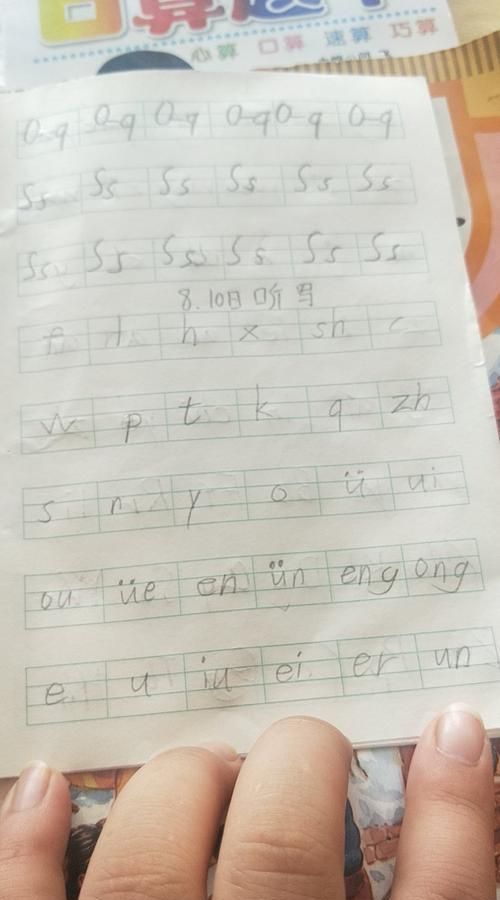 口算
心算 口算 速算 巧算
Ss Ss Ss Ss Ss Ss
Ss Ss Ss Ss Ss Ss
8.10日 听写
h x sh c
w p t k q zh
s n y o ü ui
ou üe en ün eng ong
e u iu ei er un